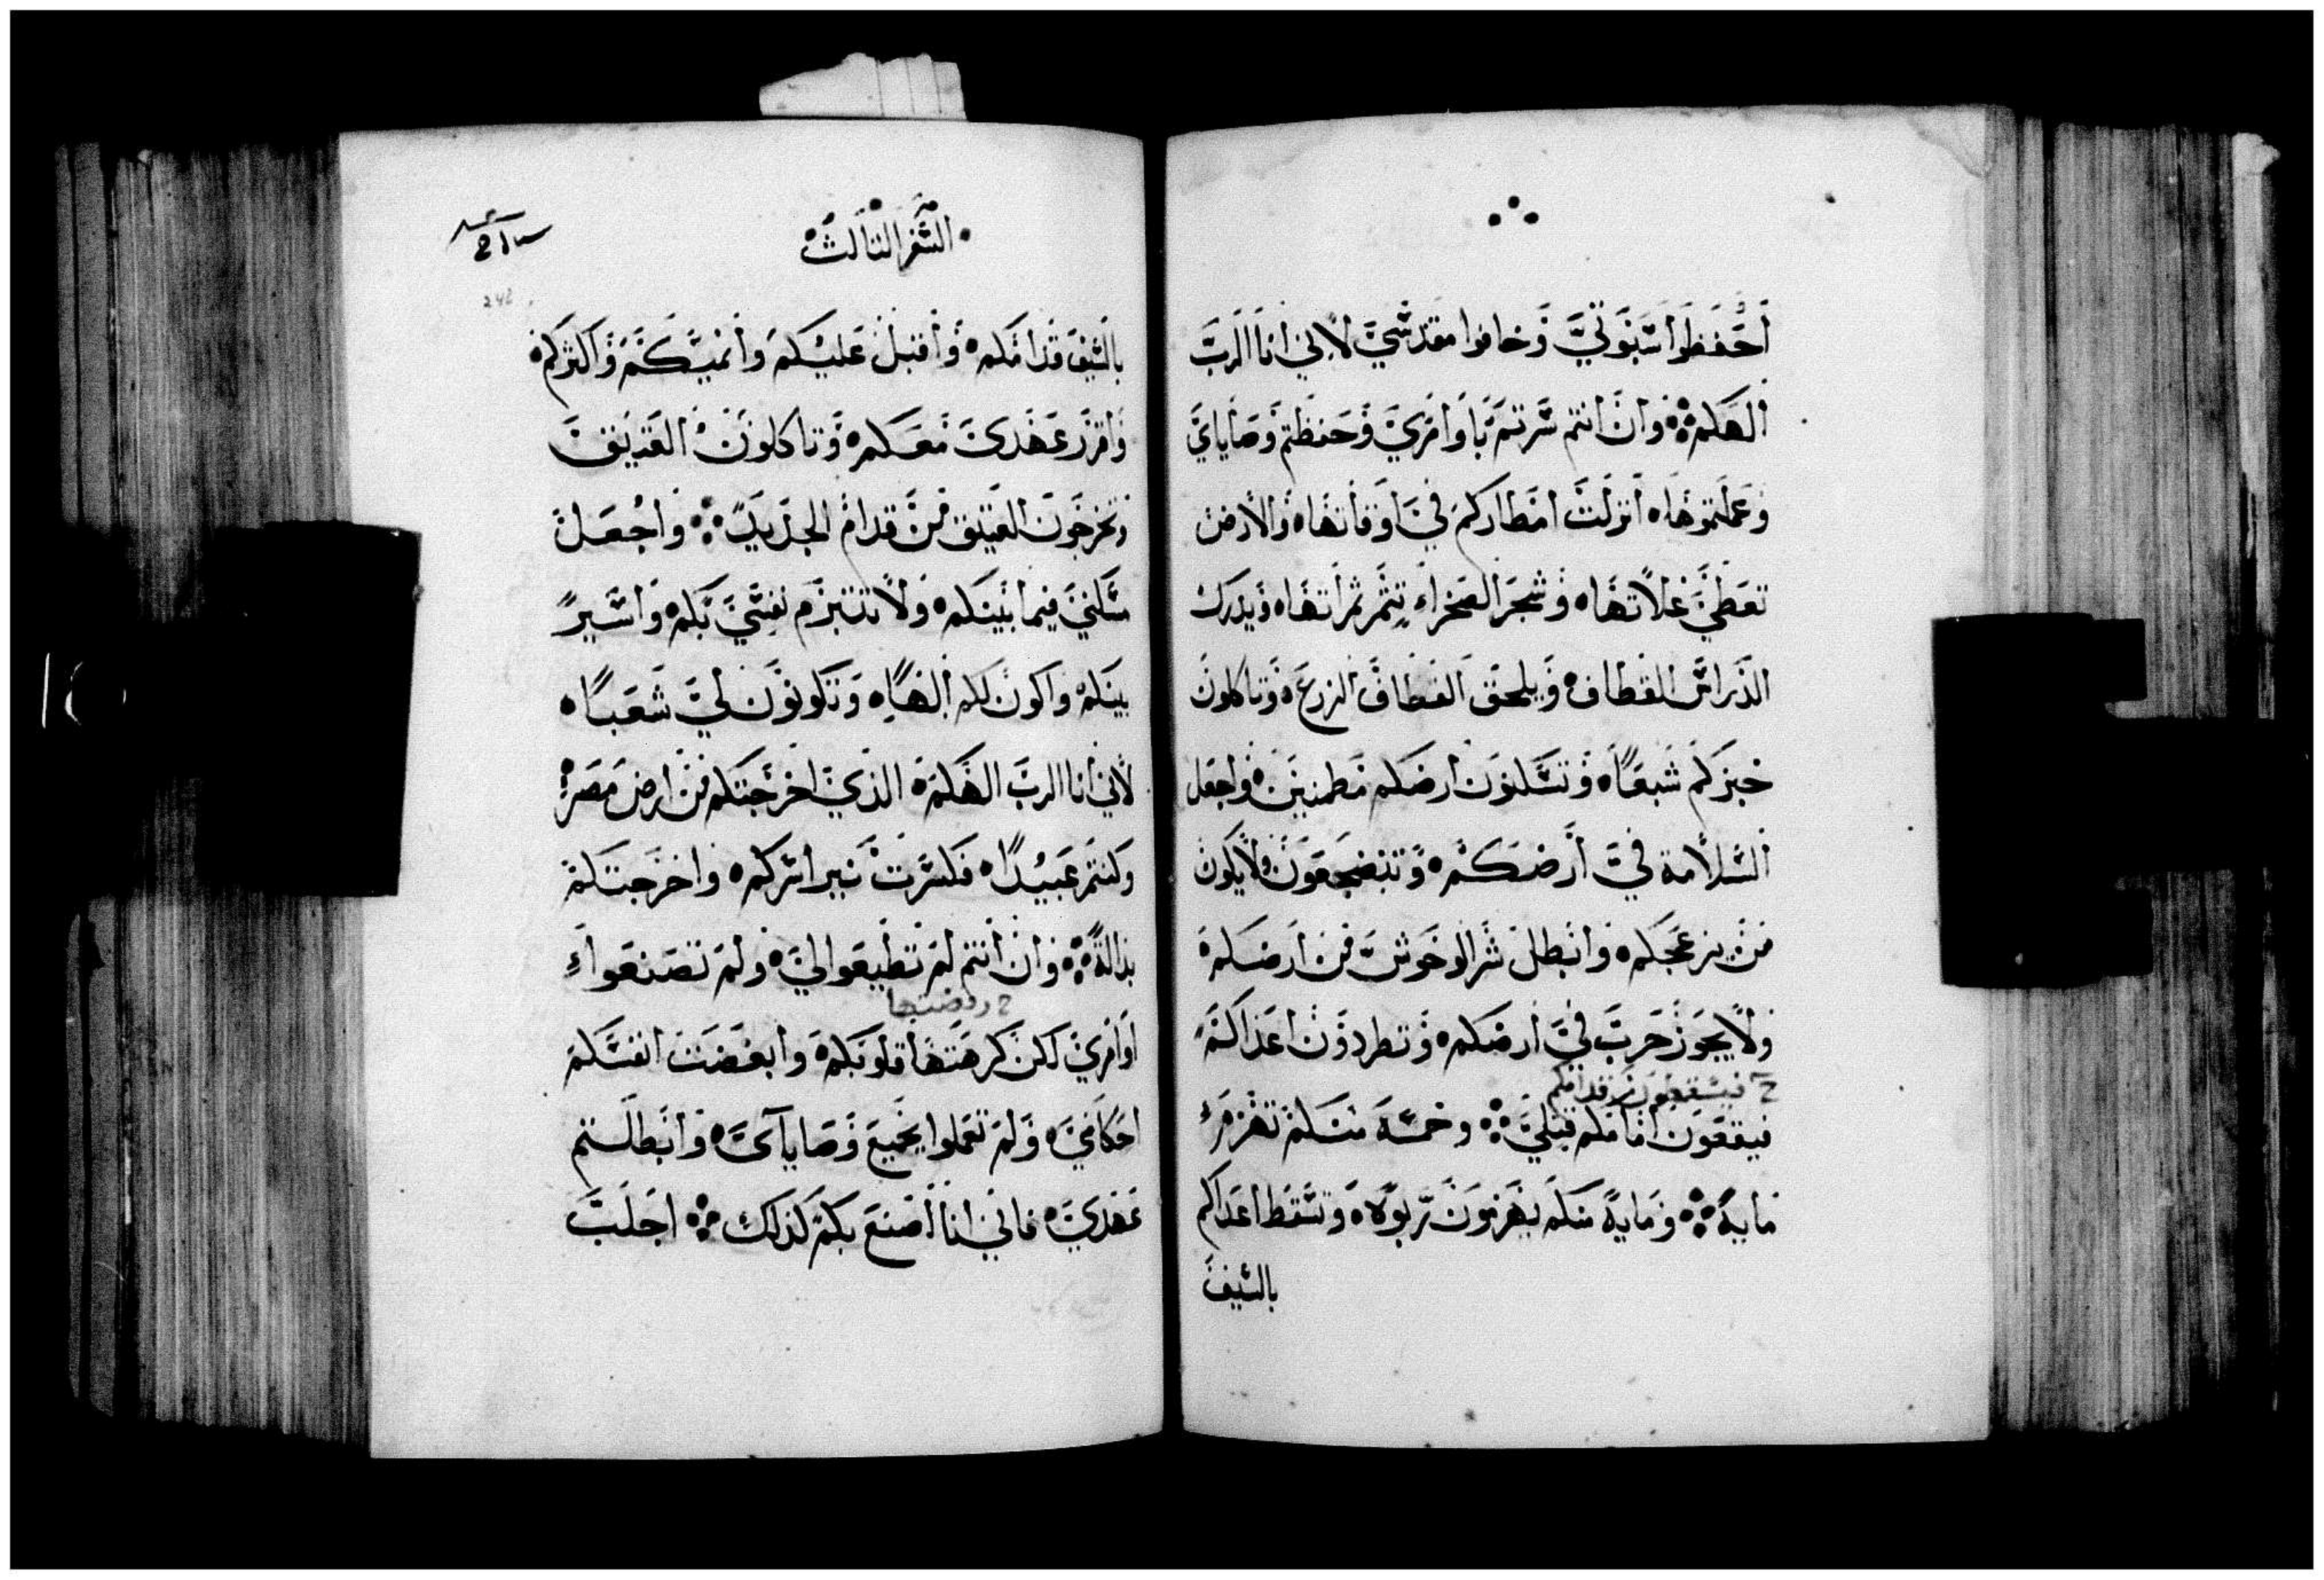 احفظوا سبوتي وخافوا مقدسي لاني انا الرب
الهكم وان انتم سرتم باوامري وحفظتم وصاياي
وعملتموها انزلت امطاركم في اوقاتها والارض
تعطي غلاتها وشجر الصحراء تثمر ثمراتها ويدرك
الدراس القطاف ويلحق القطاف الزرع وتاكلون
خبزكم شبعا وتسكنون ارضكم مطمنين واجعل
السلامة في ارضكم وتنضجعون ولا يكون
من يزعجكم وابطل شر الوحوش من ارضكم
ولا يجوز حرب في ارضكم وتطردون اعداكم
فيسقطون قدامكم
فيقعون امامكم قتلي وخمسة منكم تهزم
ماية وماية منكم يهزمون ربوة وتسقط اعداكم
بالسيف
السفر الثالث
بالسيف قدامكم واقبل عليكم وانميكم واكثركم
واقرر عهدي معكم وتاكلون العتيق
وتخرجون العتيق من قدام الجديد واجعل
مسكني فيما بينكم ولا تتبرم نفسي بكم واسير
بينكم واكون لكم الها وتكونون لي شعبا
لاني انا الرب الهكم الذي اخرجتكم من ارض مصر
وكنتم عبيدا فكسرت نير اسركم واخرجتكم
بدالة وان انتم لم تطيعوا لي ولم تصنعوا
رفضتها
اوامري لكن كرهتها قلوبكم وابغضت انفسكم
احكامي ولم تعملوا بجميع وصاياي وابطلتم
عهدي فاني انا اصنع بكم كذلك اجلب